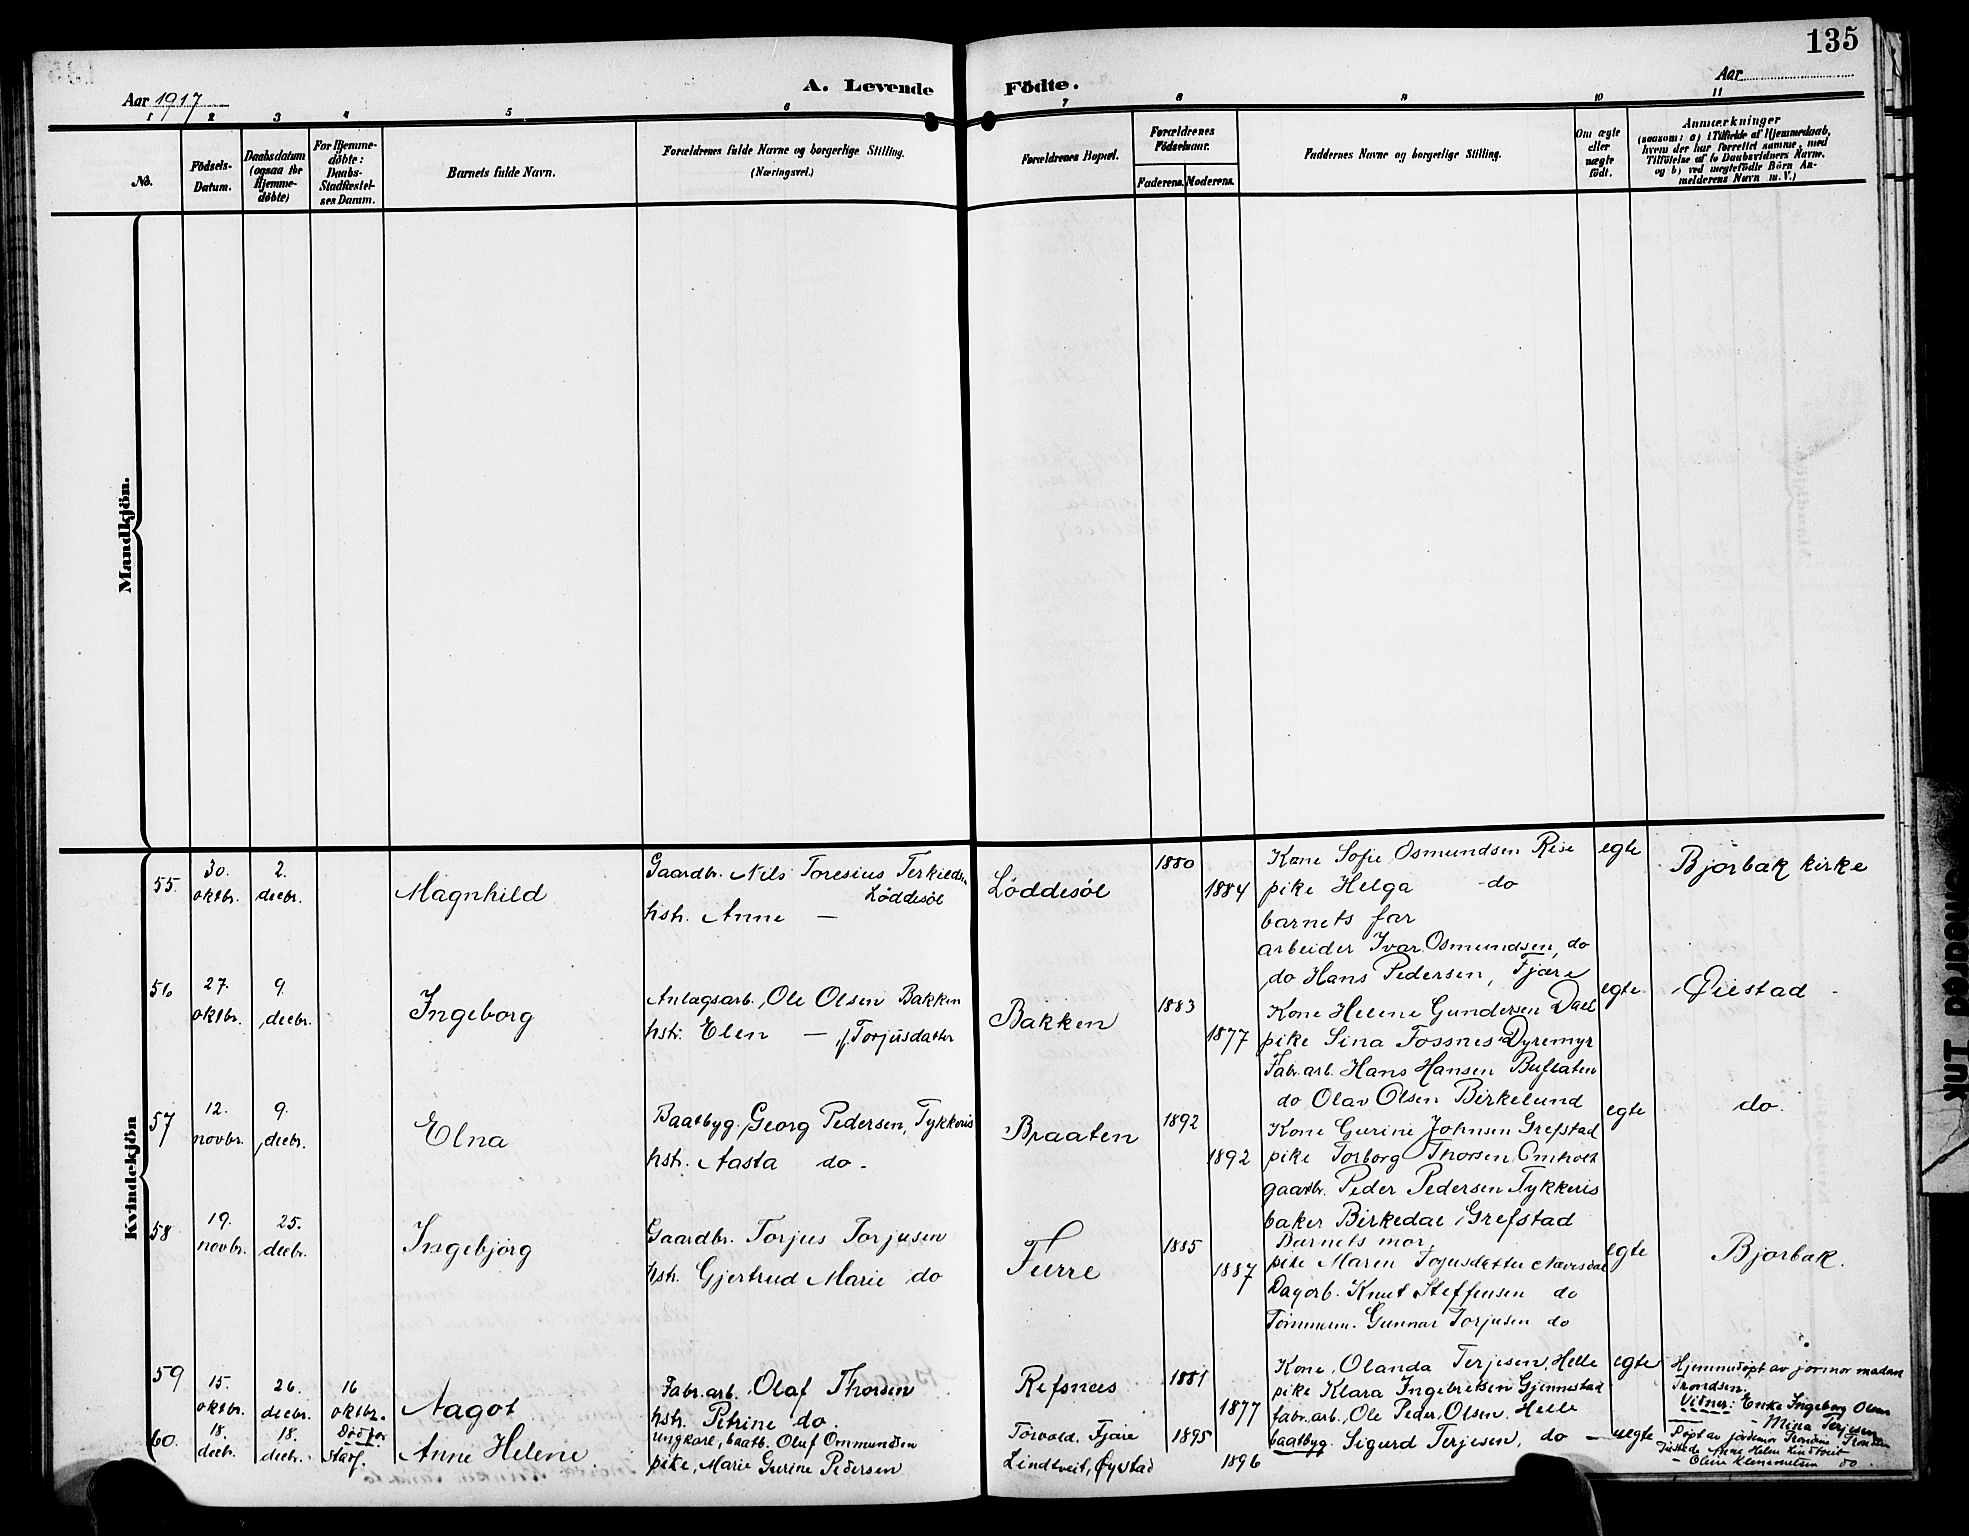 135
Aar 1917
A. Levende Födte.
Aar
1 2 3 4 5 6 7 8 9 10 11
No.
Födsels-Datum.
Daabsdatum (ogsaa for Hjemme-döbte)
For Hjemme-döbte: Daabs-Stadfæstel-ses Datum.
Barnets fulde Navn.
Forældrenes fulde Navne og borgerlige Stilling. (Næringsvei.)
Forældrenes Bopæl.
Forældrenes Födselsaar.
Faderens. Moderens.
Faddernes Navne og borgerlige Stilling.
Om ægte eller uægte födt.
Anmærkninger
(saasom: a) i Tilfælde af Hjemmedaab,
hvem der har forrettet samme, med
Tilföielse af to Daabsvidners Navne,
og b) ved uægtefödte Börn An-
melderens Navn m. V.)
Mandkjön.
Kvindekjön
55. 30. oktbr. 2. decbr. Magnhild
Gaardbr. Nils Toresius Terkilds.
Løddesøl
hstr. Anne —
Løddesøl 1880 1884
Kone Sofie Osmundsen Rise
pike Helga do
barnets far
arbeider Ivar Osmundsen, do
do Hans Pedersen, Fjære
egte Bjorbak kirke
56 27. oktbr. 9. decbr. Ingeborg
Anlagsarb. Ole Olsen Bakken
hstr. Elen — f. Torjusdatter
Bakken 1883 1877
Kone Helene Gundersen Dael
pike Sina Fossnes Dyremyr
Fabr.arb. Hans Hansen Buflaten
do Olav Olsen Birkelund
egte Øiestad
57 12. novbr. 9. decbr. Elna
Baatbyg. Georg Pedersen, Tykkeris
hstr. Aasta do.
Braaten 1892 1892
Kone Gurine Johnsen Grefstad
pike Torborg Thorsen Omholt
gaardbr. Peder Pedersen Tykkeris
baker Birkedal, Grefstad
egte do.
58 19. novbr. 25. decbr. Ingebjørg
Gaardbr. Torjus Torjusen
hstr. Gjertrud Marie do
Furre 1885 1887
Barnets mor,
pike Maren Tojusdatter Nævesdal
Dagarb. Knut Steffensen do
Tømmerm. Gunnar Torjusen do
egte Bjorbak.
59 15. oktbr. 26. decbr. 16 oktbr. Aagot
Fabr.arb. Olaf Thorsen
hstr. Petrine do.
Refsnes 1881 1877
Kone, Olanda Terjesen, Helle
pike Klara Ingebretsen Gjennestad
fabr.arb. Ole Peder Olsen, Helle
baatbyg. Sigurd Terjesen, do
egte
Hjemmedøpt av jormor madam
Trondsen.
Vitner: Enke Ingeborg Olsen
- Mina Terjesen
60. 18. decbr. 18. decbr. Død før Stadf. Anne Helene.
ungkarl, baatb. Oluf Ommundsen
pike, Marie Gurine Pedersen
Törvold, Fjære 1895
Lindtveit, Øyestad 1896
— uegte
Døpt av jordemor
Anne Helene Lindtveit
- Oline Klemmetsen do